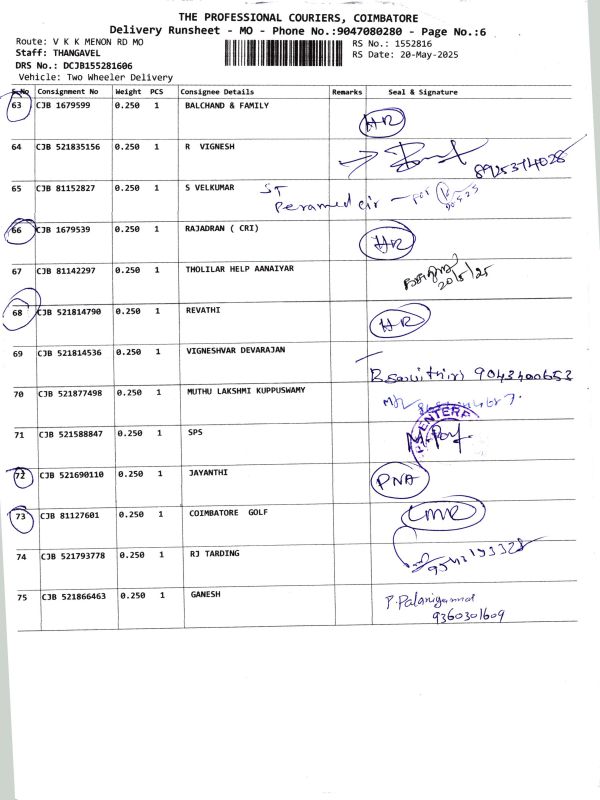 THE PROFESSIONAL COURIERS, COIMBATORE
Delivery Runsheet - MO - Phone No.:9047080280 - Page No.:6
Route: V K K MENON RD MO RS No.: 1552816
Staff: THANGAVEL RS Date: 20-May-2025
DRS No.: DCJB155281606
Vehicle: Two Wheeler Delivery
S.No Consignment No Weight PCS Consignee Details Remarks Seal & Signature
63 CJB 1679599 0.250 1 BALCHAND & FAMILY HR
64 CJB 521835156 0.250 1 R VIGNESH 8925374028
65 CJB 81152827 0.250 1 S VELKUMAR ST
66 CJB 1679539 0.250 1 RAJADRAN ( CRI) HR
67 CJB 81142297 0.250 1 THOLILAR HELP AANAIYAR 20/5/25
68 CJB 521814790 0.250 1 REVATHI HR
69 CJB 521814536 0.250 1 VIGNESHVAR DEVARAJAN 9043400653
70 CJB 521877498 0.250 1 MUTHU LAKSHMI KUPPUSWAMY
71 CJB 521588847 0.250 1 SPS
72 CJB 521690110 0.250 1 JAYANTHI PNA
73 CJB 81127601 0.250 1 COIMBATORE GOLF
74 CJB 521793778 0.250 1 RJ TARDING
75 CJB 521866463 0.250 1 GANESH P. Palaniyammal
9360301609